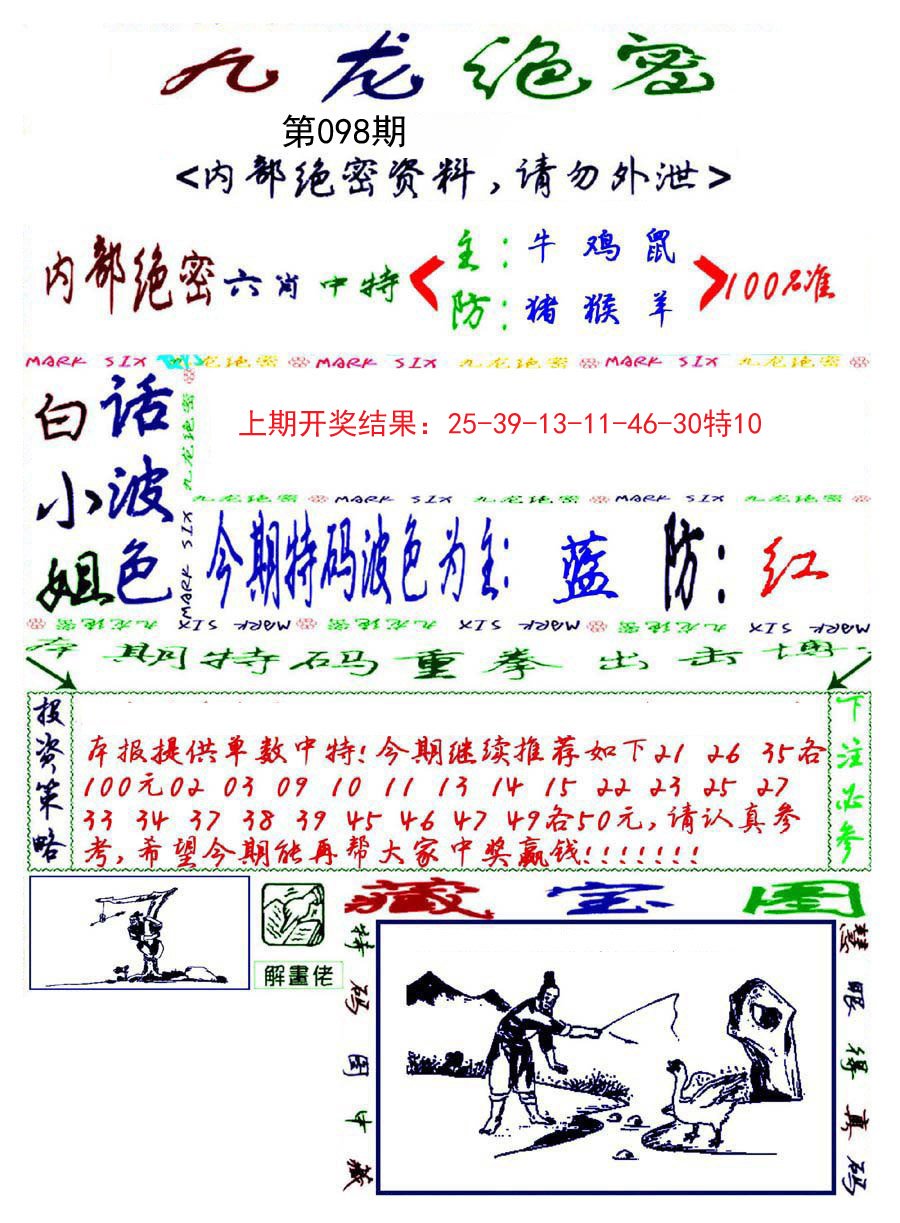 九龙绝密
第098期
<内部绝密资料，请勿外泄>
内部绝密六肖中特
主：牛 鸡 鼠
防：猪 猴 羊
100%准
MARK SIX 九龙绝密 MARK SIX 九龙绝密 MARK SIX 九龙绝密
白话
小波
姐色
九龙绝密
MARK SIX
上期开奖结果：25-39-13-11-46-30特10
九龙绝密 MARK SIX 九龙绝密 MARK SIX 九龙绝密
今期特码波色为主：蓝 防：红
九龙绝密 MARK SIX 九龙绝密 MARK SIX 九龙绝密 MARK SIX
本期特码重拳出击博
投资策略
本报提供单数中特！今期继续推荐如下21 26 35各
100元02 03 09 10 11 13 14 15 22 23 25 27
33 34 37 38 39 45 46 47 49各50元，请认真参
考，希望今期能再帮大家中奖赢钱！！！！！！！
下注必参
解畫佬
藏宝图
特码图中藏
慧眼得真码